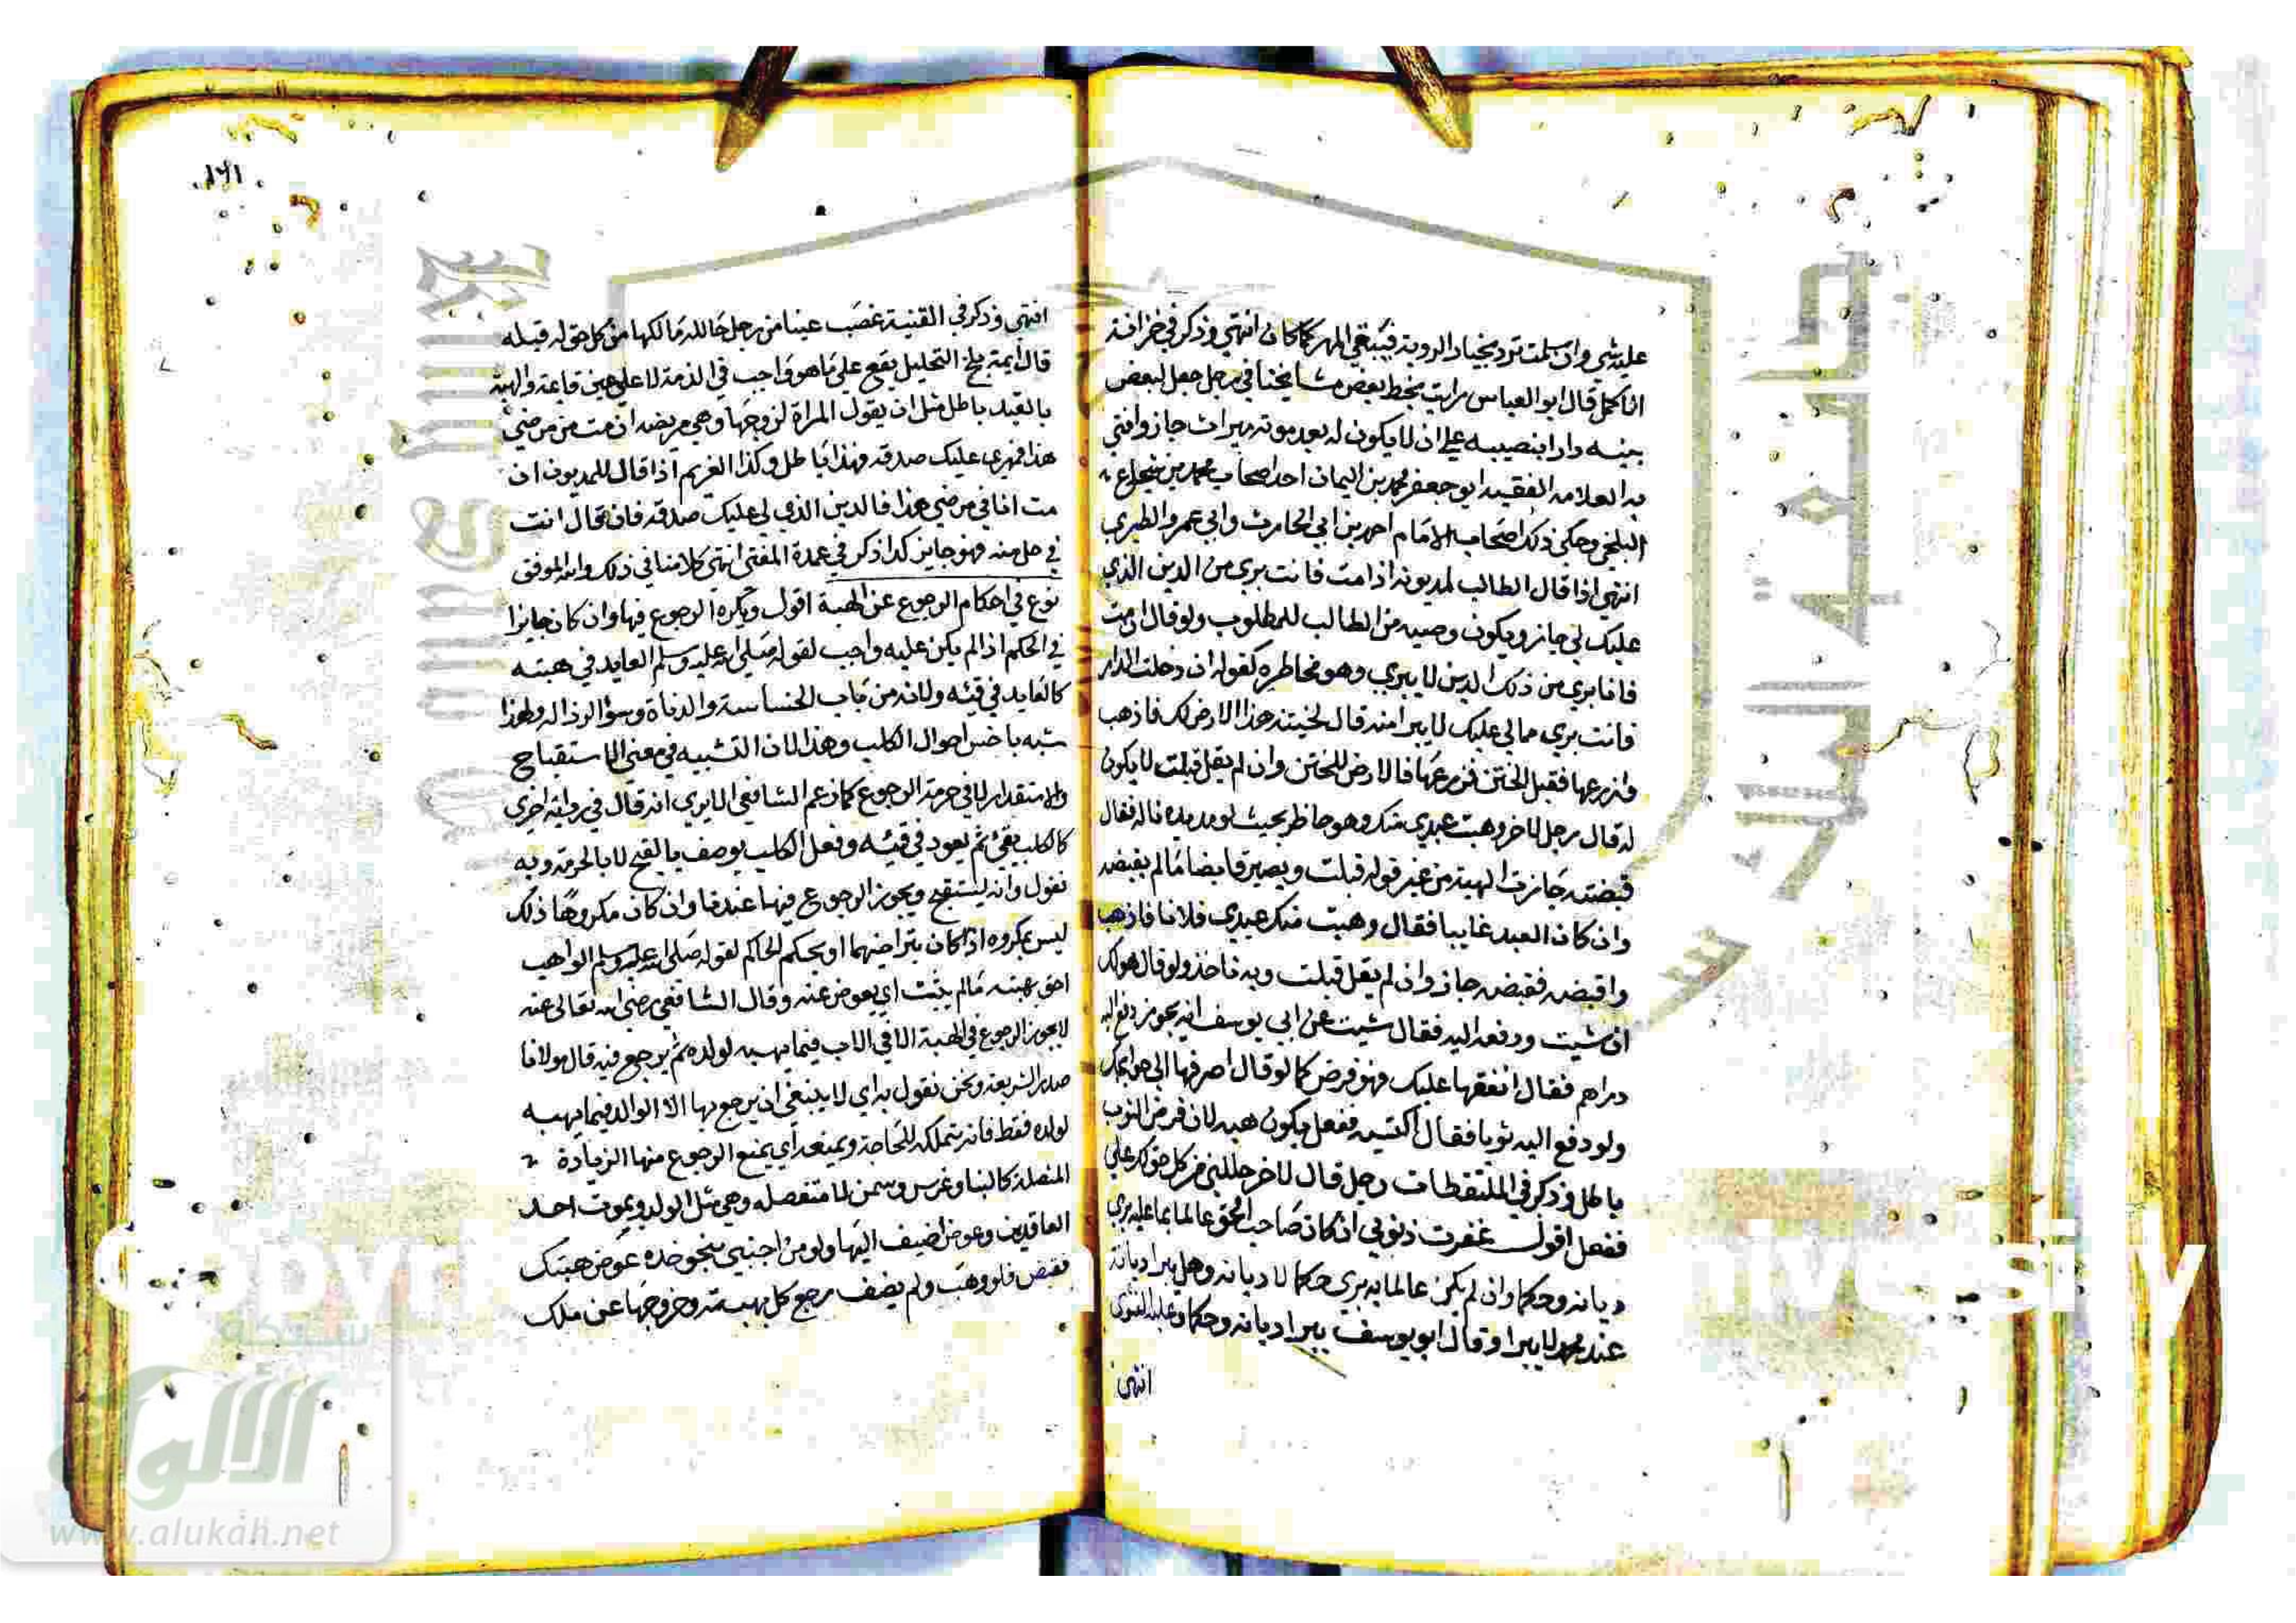 عليه شي وان سلمت ترد بخيار الروية فيبقي المهر كما كان انتهي وذكر في خزانة
الاكمل قال ابو العباس رايت بخط بعض مشايخنا في رجل جعل لبعض
بنيه دارا بنصيبه علي ان لا يكون له بعد موته ميراث جاز وافتي
به العلامه الفقيه ابو جعفر محمد بن اليمان احد اصحاب محمد بن شجاع
البلخي وحكي ذلك اصحاب الامام احمد بن ابي الحارث وابي عمرو الطبري
انتهي اذا قال الطالب لمديونه اذا مت فانت بري من الدين الذي
عليك لي جاز ويكون وصيه من الطالب للمطلوب ولو قال ان مت
فانا بري من ذلك الدين لا يبري وهو مخاطره كقوله ان دخلت الدار
فانت بري مما لي عليك لا يبرا منه قال لختنه هذا الارض لك فاذهب
وازرعها فقبل الختن فزرعها فالارض للختن وان لم يقل قبلت لا يكون
له قال رجل لاخر وهبت عبدي منك وهو حاظر بحيث لو مد يده ناله فقال
قبضته جازت الهبة من غير قوله قبلت ويصير قابضا مالم يقبضه
وان كان العبد غايبا فقال وهبت منك عبدي فلانا فاذهب
واقبضه فقبضه جاز وان لم يقل قبلت وبه ناخذ ولو قال هو لك
ان شيت ودفعه اليه فقال شيت عن ابي يوسف انه يجوز دفع اليه
دراهم فقال انفقها عليك فهو قرض كما لو قال اصرفها الي حوايجك
ولو دفع اليه ثوبا فقال اكتسيه ففعل يكون هبه لان قرض الثوب
باطل وذكر في الملتقطات رجل قال لاخر حللني من كل حق لك علي
ففعل اقول غفرت ذنوبي ان كان صاحب الحق عالما بما عليه بري
ديانه وحكما وان لم يكن عالما به بري حكما لا ديانه وهل يبرا ديانة
عند محمد لا يبرا وقال ابو يوسف يبرا ديانه وحكما وعليه الفتوي
انتهي
١٦١
انتهي وذكر في القنية غصب عينا من رجل حالله مالكها من كل حق له قبله
قال ايمة بلخ التحليل يقع علي ما هو واجب في الذمة لا علي عين قاعة والهبة
بالقيد باطل مثل ان يقول المراة لزوجها وهي مريضه ان مت من مرضي
هذا فمهري عليك صدقه فهذا باطل وكذا الغريم اذا قال للمديون ان
مت انا في مرضي هذا فالدين الذي لي عليك صدقه فان قال انت
في حل منه فهو جايز كدا ذكر في عمدة المفتي انتهي كلامنا في ذلك والله الموفق
نوع في احكام الرجوع عن الهبة اقول ويكره الرجوع فيها وان كان جايزا
في الحكم اذا لم يكن عليه واجب لقوله صلي الله عليه وسلم العايد في هبته
كالعايد في قيئه ولانه من باب الخساسة والدناة وسؤ الرذاله ولهذا
شبه باخس احوال الكلب وهذا لان التشبيه في معني الاستقباح
والاستقذار لا في حرمة الرجوع كما زعم الشافعي الا يري انه قال في رواية اخري
كالكلب يقي ثم يعود في قيئه وفعل الكلب يوصف بالقبح لا بالحرمة وبه
نقول وانه ليستقبح ويجوز الرجوع فيها عندنا وان كان مكروها ذلك
ليس بمكروه اذا كان بتراضيهما او بحكم الحاكم لقوله صلي الله عليه وسلم الواهب
احق بهبته مالم يثب اي يعوض عنه وقال الشافعي رضي الله تعالي عنه
لا يجوز الرجوع في الهبة الا في الاب فيما يهبه لولده ثم يرجع فيه قال مولانا
صدر الشريعة ونحن نقول به اي لا ينبغي ان يرجع بها الا الوالد فيما يهبه
لولده فقط فانه يتملكه للحاجة ويمنعه اي يمنع الرجوع منها الزيادة
المتصلة كالبنا وغرس وسمن لا منفصله وهي مثل الولد وبموت احد
العاقدين وعوض اضيف اليها ولو من اجنبي بنحو خذه عوض هبتك
فقبض فلو وهب ولم يضف رجع كل بهبته وخروجها عن ملك
جامعة الملك سعود
شبكة
الألوكة
www.alukah.net